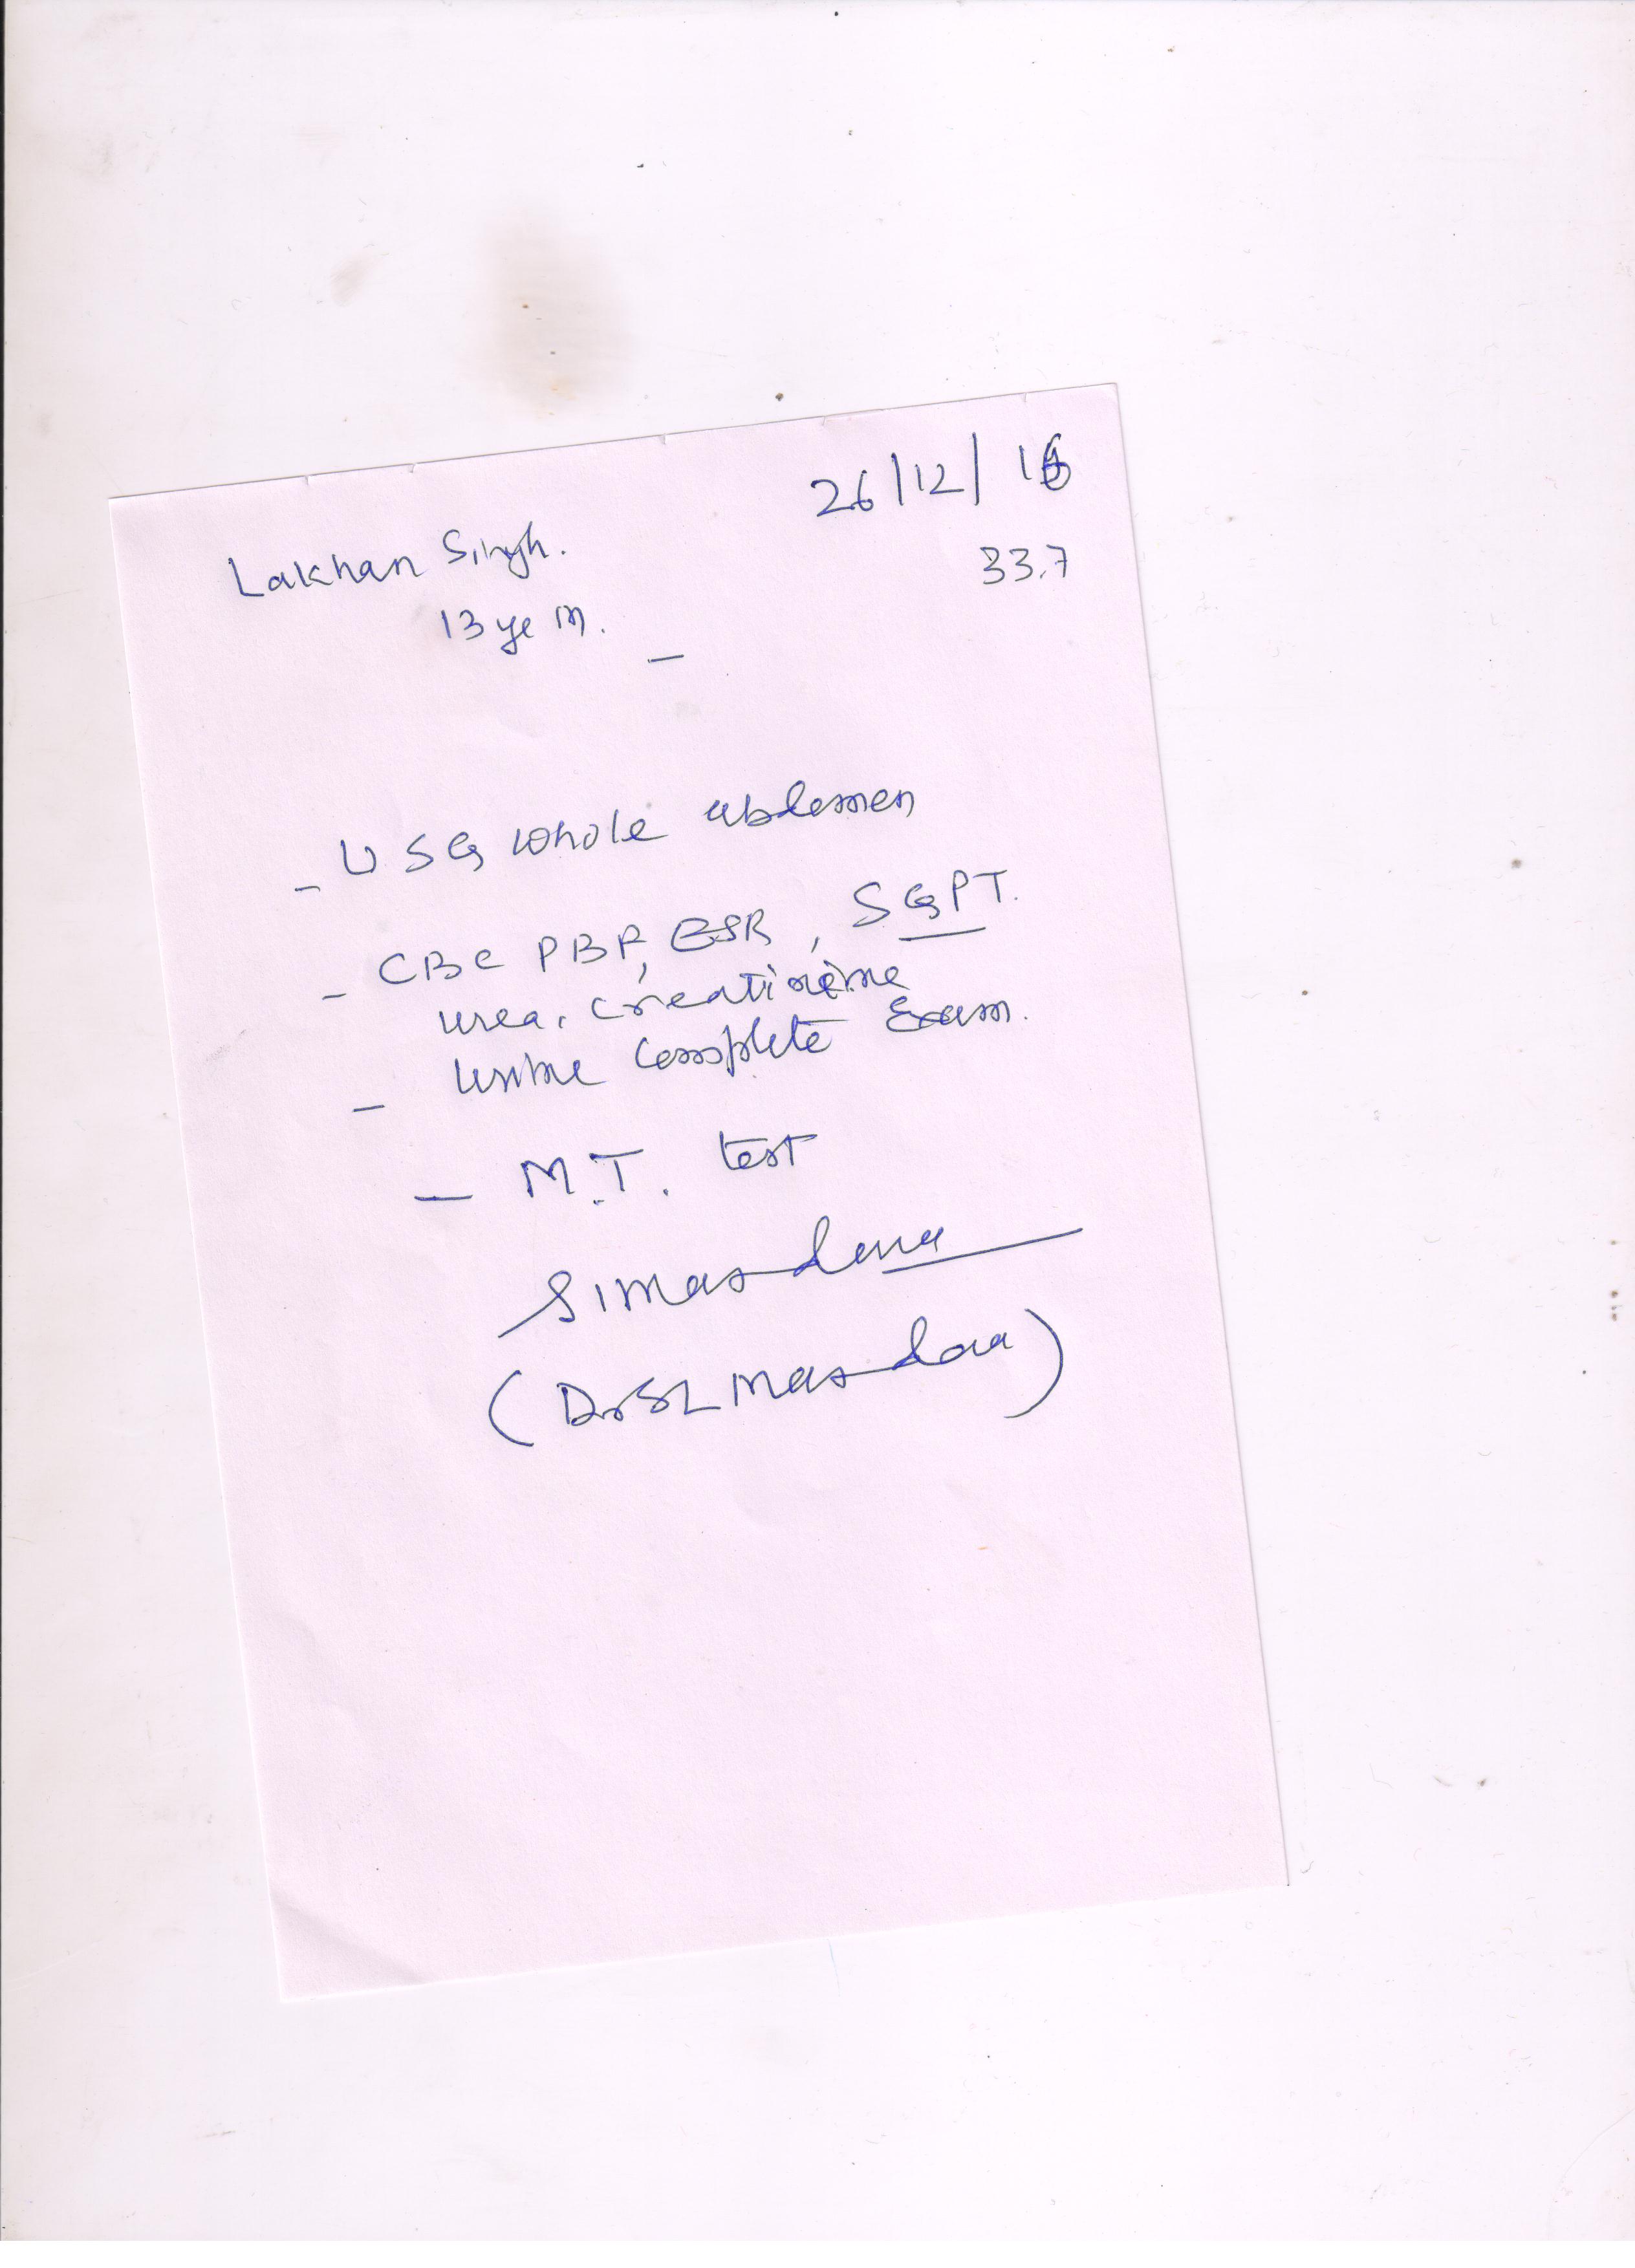 26/12/16
Lakhan Singh.
33.7
13 ye M.
- USG whole abdomen
- CBC PBF, ESR, SGPT.
urea, creatinine
- Urine complete Exam.
- M.T. test
(Dr SL